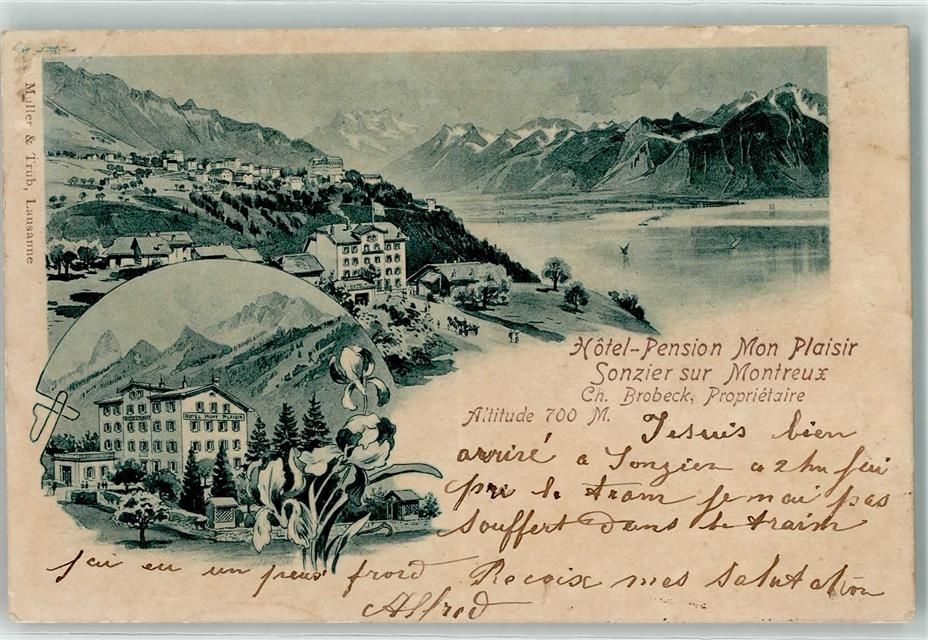 Müller & Trüb, Lausanne
HOTEL MONT PLAISIR
Hôtel-Pension Mon Plaisir
Sonzier sur Montreux
Ch. Brobeck, Propriétaire
Altitude 700 M.
Je suis bien
arrivé a Sonzier a 2 h jai
pri le tram je mai pas
souffert dans le traim
jai eu un peus froid Recoix mes salutation
Alfred